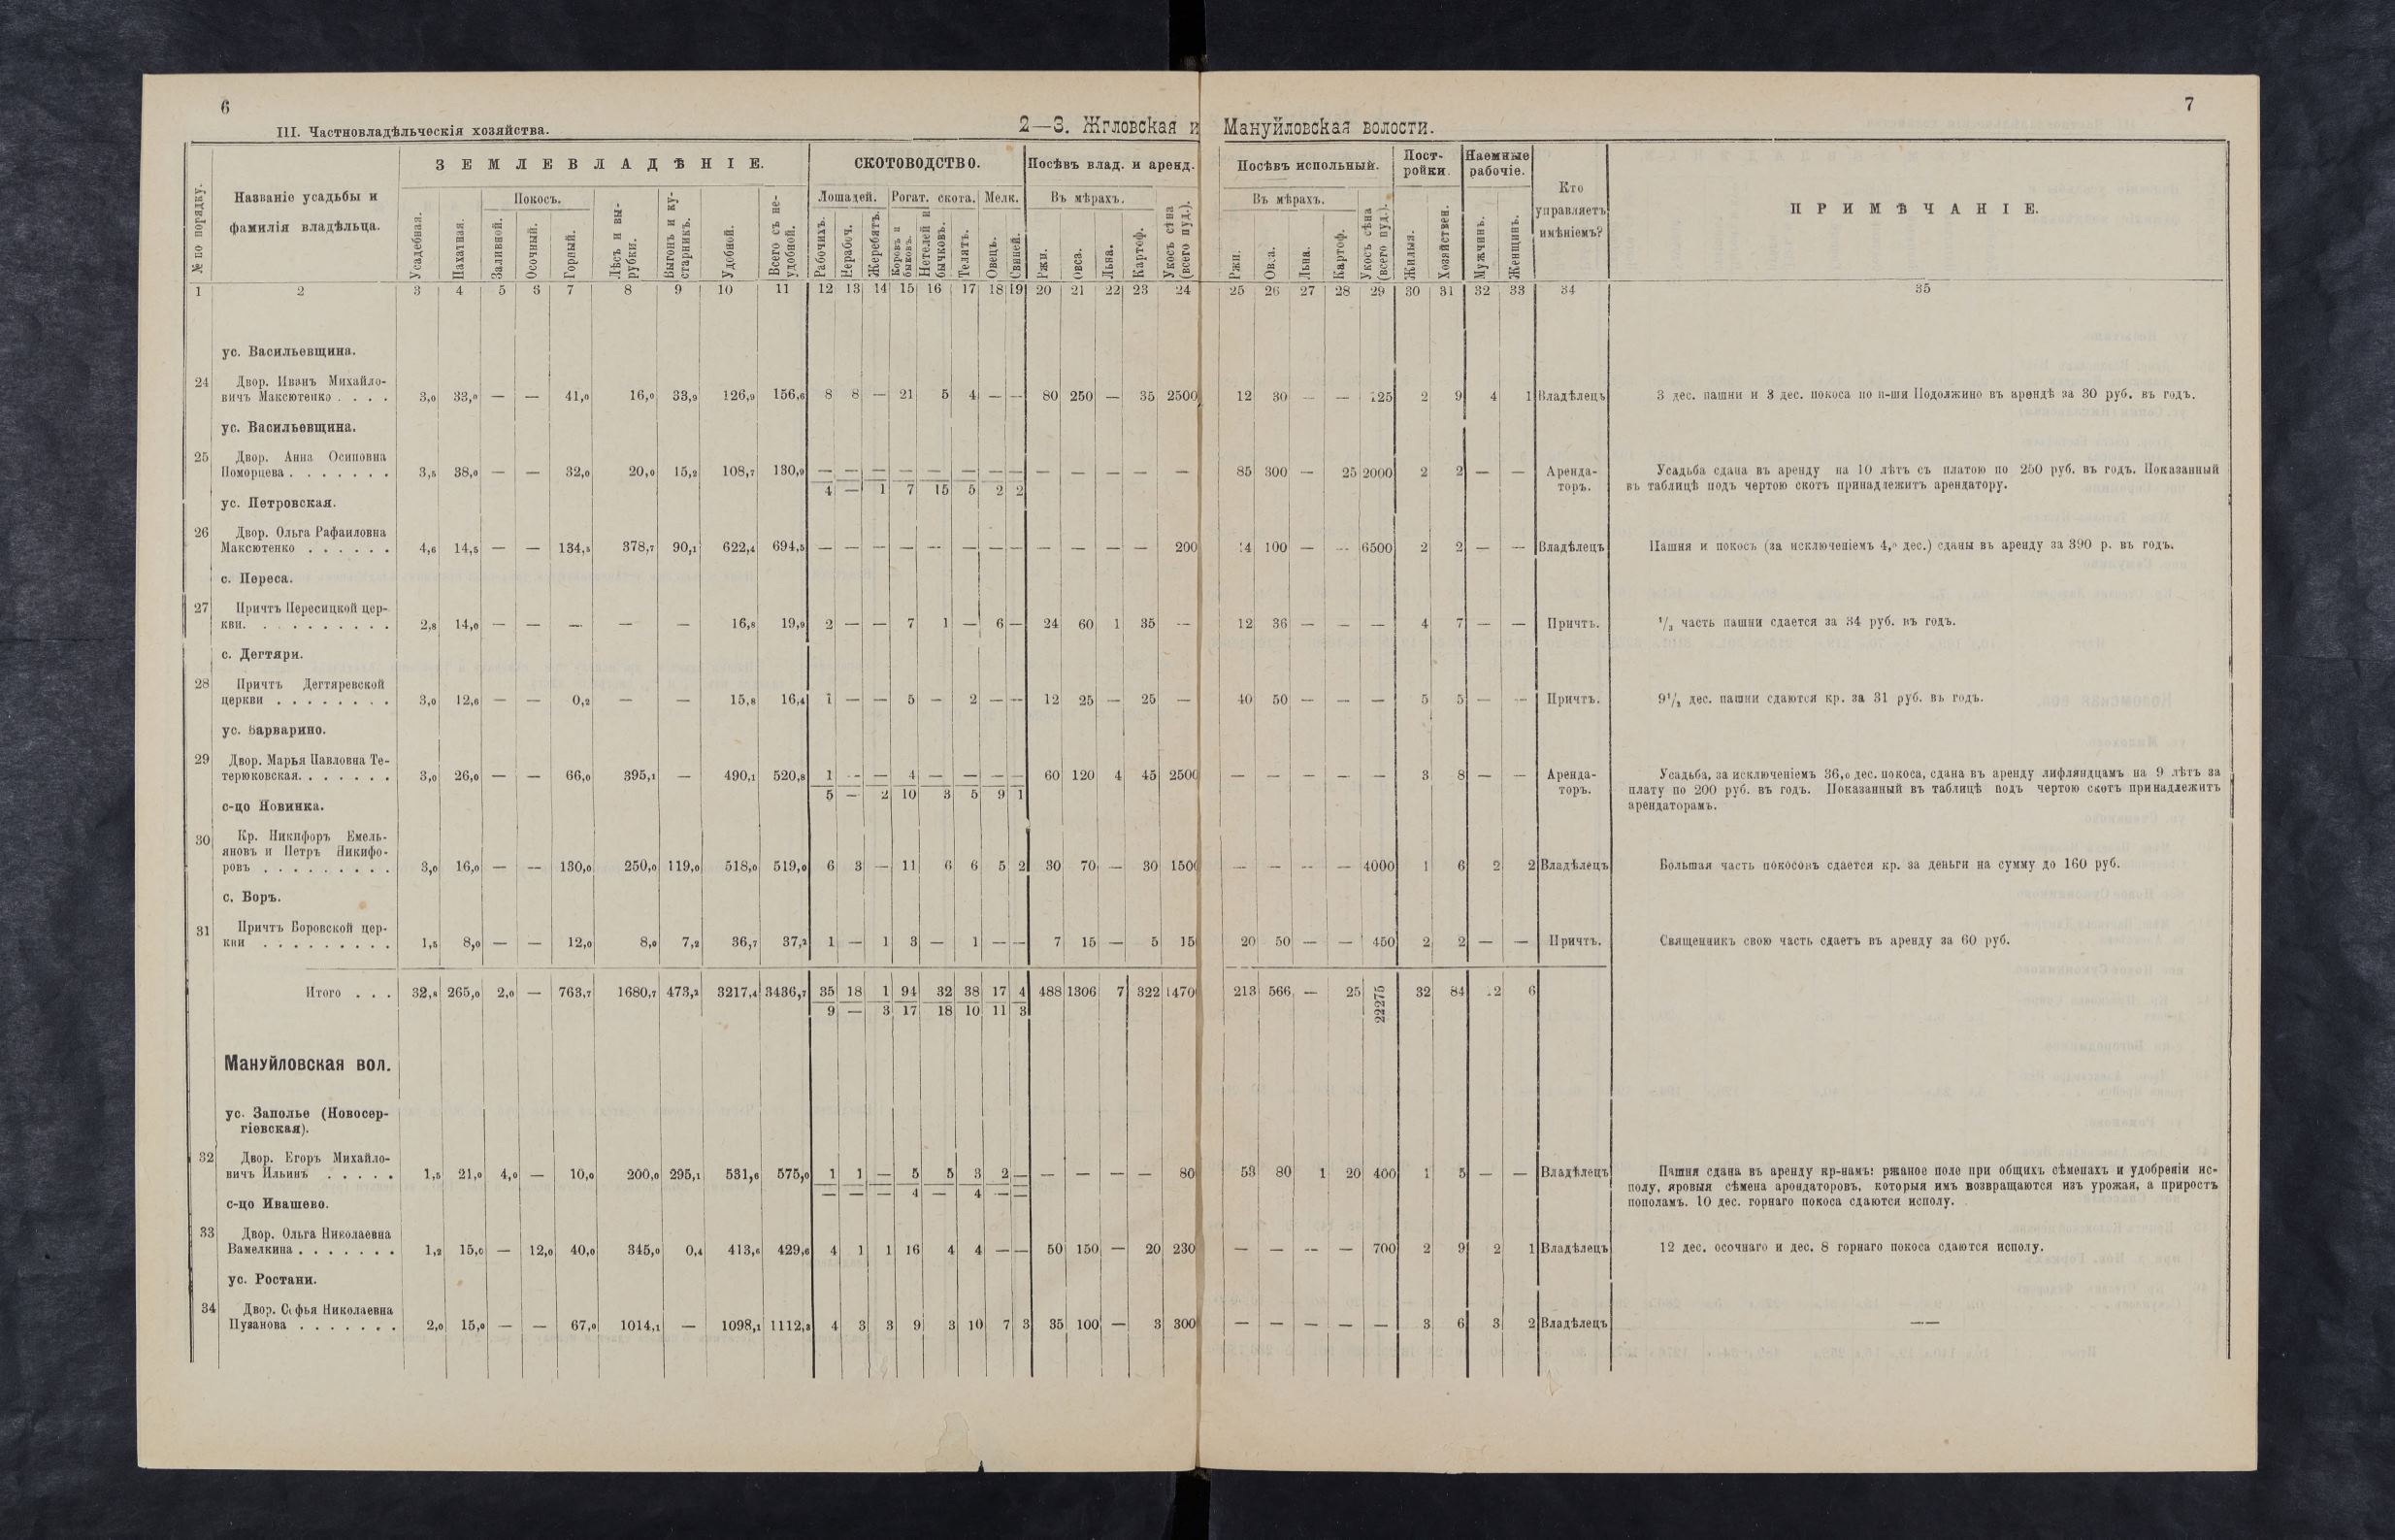 6
III. Частновладѣльческія хозяйства.
2—3. Жгловская и Мануйловская волости.
7
№ по порядку.
Названіе усадьбы и
фамилія владѣльца.
ЗЕМЛЕВЛАДѢНІЕ.
СКОТОВОДСТВО.
Посѣвъ влад. и аренд.
Посѣвъ испольный.
Пост-
ройки.
Наемные
рабочіе.
Кто
управляетъ
имѣніемъ?
ПРИМѢЧАНІЕ.
Покосъ.
Лошадей. Рогат. скота. Мелк.
Въ мѣрахъ.
Въ мѣрахъ.
Усадебная.
Пахатная.
Заливной.
Осочный.
Горный.
Лѣсъ и вы-
рубки.
Выгонъ и ку-
старникъ.
Удобной.
Всего съ не-
удобной.
Рабочихъ.
Нерабоч.
Жеребятъ.
Коровъ и
быковъ.
Нетелей и
бычковъ.
Телятъ.
Овецъ.
Свиней.
Ржи.
Овса.
Льна.
Картоф.
Укосъ сѣна
(всего пуд.).
Ржи.
Овса.
Льна.
Картоф.
Укосъ сѣна
(всего пуд.).
Жилыя.
Хозяйствен.
Мужчинъ.
Женщинъ.
1 2 3 4 5 3 7 8 9 10 11 12 13 14 15 16 17 18 19 20 21 22 23 24 25 26 27 28 29 30 31 32 33 34 35
ус. Васильевщина.
24 Двор. Иванъ Михайло-
вичъ Максютенко . . . . 3,0 33,0 — — 41,0 16,0 33,9 126,9 156,6 8 8 — 21 5 4 — — 80 250 — 35 2500 12 30 — — 125 2 9 4 1 Владѣлецъ 3 дес. пашни и 3 дес. покоса по п-ши Подолжино въ арендѣ за 30 руб. въ годъ.
ус. Васильевщина.
25 Двор. Анна Осиповна
Поморцева . . . . . . . 3,5 38,0 — — 32,0 20,0 15,2 108,7 130,9 — — — — — — — — — — — — — 85 300 — 25 2000 2 2 — — Аренда- Усадьба сдана въ аренду на 10 лѣтъ съ платою по 250 руб. въ годъ. Показанный
4 — 1 7 15 5 2 2 торъ. въ таблицѣ подъ чертою скотъ принадлежитъ арендатору.
ус. Петровская.
26 Двор. Ольга Рафаиловна
Максютенко . . . . . . 4,6 14,5 — — 134,5 378,7 90,1 622,4 694,5 — — — — — — — — — — — — 200 14 100 — — 6500 2 2 — — Владѣлецъ Пашня и покосъ (за исключеніемъ 4,0 дес.) сданы въ аренду за 390 р. въ годъ.
с. Переса.
27 Причтъ Пересицкой цер-
кви. . . . . . . . . . 2,8 14,0 — — — — — 16,8 19,9 2 — — 7 1 — 6 — 24 60 1 35 — 12 36 — — — 4 7 — — Причтъ. 1/3 часть пашни сдается за 34 руб. въ годъ.
с. Дегтяри.
28 Причтъ Дегтяревской
церкви . . . . . . . . 3,0 12,6 — — 0,2 — — 15,8 16,4 1 — — 5 — 2 — — 12 25 — 25 — 40 50 — — — 5 5 — — Причтъ. 9 1/2 дес. пашни сдаются кр. за 31 руб. въ годъ.
ус. Варварино.
29 Двор. Марья Павловна Те-
терюковская. . . . . . . 3,0 26,0 — — 66,0 395,1 — 490,1 520,8 1 — — 4 — — — — 60 120 4 45 2500 — — — — — 3 8 — — Аренда- Усадьба, за исключеніемъ 36,0 дес. покоса, сдана въ аренду лифляндцамъ на 9 лѣтъ за
5 — 2 10 3 5 9 1 торъ. плату по 200 руб. въ годъ. Показанный въ таблицѣ подъ чертою скотъ принадлежитъ
арендаторамъ.
с-цо Новинка.
30 Кр. Никифоръ Емель-
яновъ и Петръ Никифо-
ровъ . . . . . . . . . 3,0 16,0 — — 130,0 250,0 119,0 518,0 519,0 6 3 — 11 6 6 5 2 30 70 — 30 1500 — — — — 4000 1 6 2 2 Владѣлецъ Большая часть покосовъ сдается кр. за деньги на сумму до 160 руб.
с. Боръ.
31 Причтъ Боровской цер-
кви . . . . . . . . . 1,5 8,0 — — 12,0 8,0 7,2 36,7 37,2 1 — 1 3 — 1 — — 7 15 — 5 15 20 50 — — 450 2 2 — — Причтъ. Священникъ свою часть сдаетъ въ аренду за 60 руб.
Итого . . . 32,8 265,0 2,0 — 763,7 1680,7 473,2 3217,4 3436,7 35 18 1 94 32 38 17 4 488 1306 7 322 1470 213 566 — 25 22275 32 84 12 6
9 — 3 17 18 10 11 3
Мануйловская вол.
ус. Заполье (Новосер-
гіевская).
32 Двор. Егоръ Михайло-
вичъ Ильинъ . . . . . 1,5 21,0 4,0 — 10,0 200,0 295,1 531,6 575,0 1 1 — 5 5 3 2 — — — — — 80 53 80 1 20 400 1 5 — — Владѣлецъ Пашня сдана въ аренду кр-намъ: ржаное поле при общихъ сѣменахъ и удобреніи ис-
— — — 4 — 4 — — полу, яровыя сѣмена арондаторовъ, которыя имъ возвращаются изъ урожая, а приростъ
пополамъ. 10 дес. горнаго покоса сдаются исполу.
с-цо Ивашево.
33 Двор. Ольга Николаевна
Вамелкина . . . . . . . 1,2 15,0 — 12,0 40,0 345,0 0,4 413,6 429,6 4 1 1 16 4 4 — — 50 150 — 20 230 — — — — 700 2 9 2 1 Владѣлецъ 12 дес. осочнаго и дес. 8 горнаго покоса сдаются исполу.
ус. Ростани.
34 Двор. Софья Николаевна
Пузанова . . . . . . . 2,0 15,0 — — 67,0 1014,1 — 1098,1 1112,3 4 3 3 9 3 10 7 3 35 100 — 3 300 — — — — — 3 6 3 2 Владѣлецъ ——